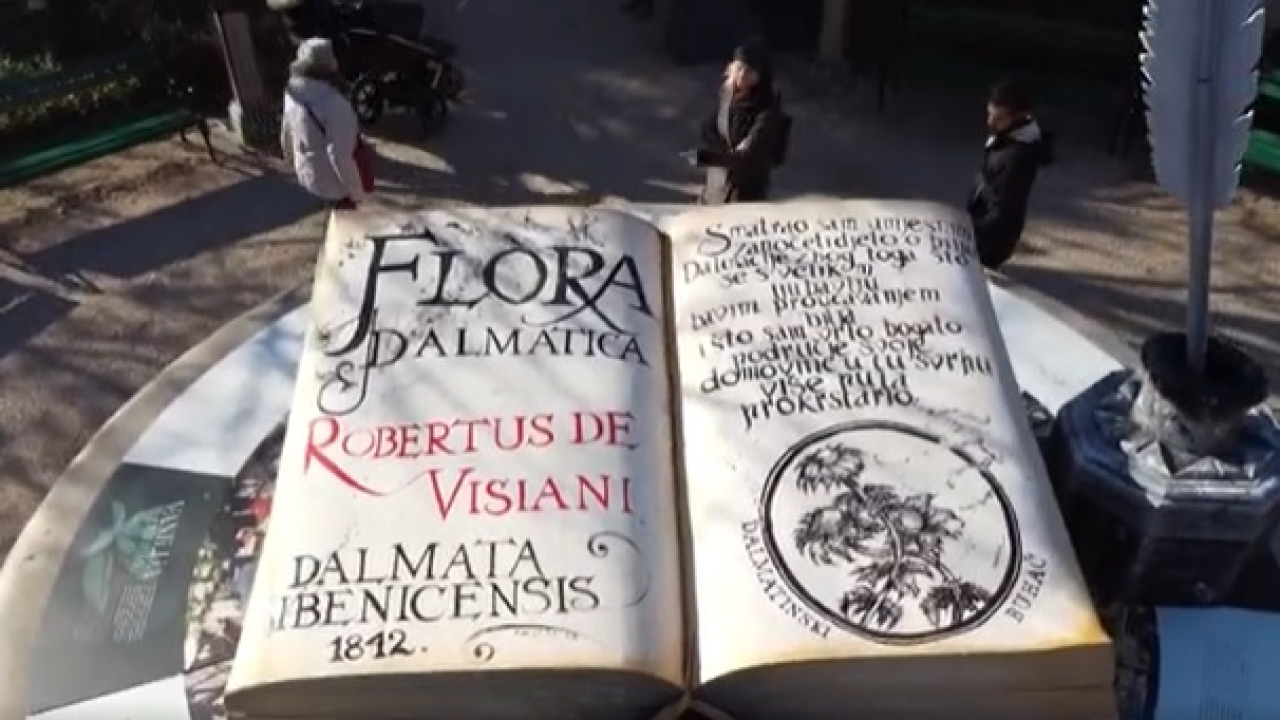 FLORA
DALMATICA
ROBERTUS DE
VISIANI
DALMATA
IBENICENSIS
1842.
Smatrao sam umjesnim
započeti djelo o bilju
Dalmacije zbog toga što
se s velikom
ljubavlju
bavim proučavanjem
bilja
i što sam vrlo bogato
područje svoje
domovine u tu svrhu
više puta
prokrstario.
DALMATINSKI
BUHAČ